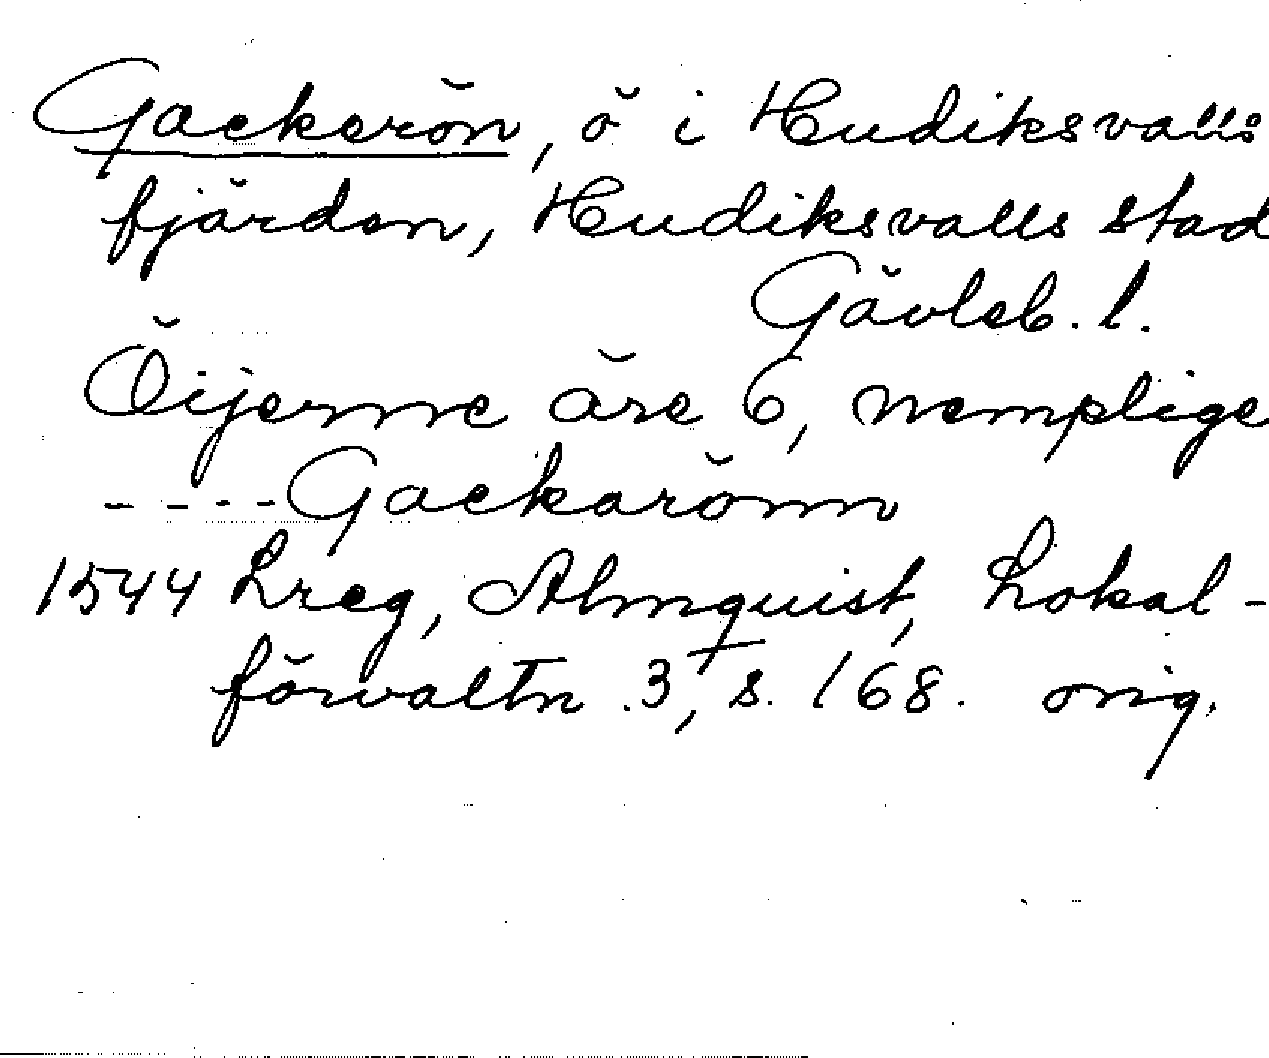 Gackerön, ö i Hudiksvalls
fjärden, Hudiksvalls stad
Gävleb. l.
Öijerne äre 6, nemplige
---- Gackarönn
1544 Lreg, Almquist, Lokal-
förvaltn. 3, s. 168. orig.